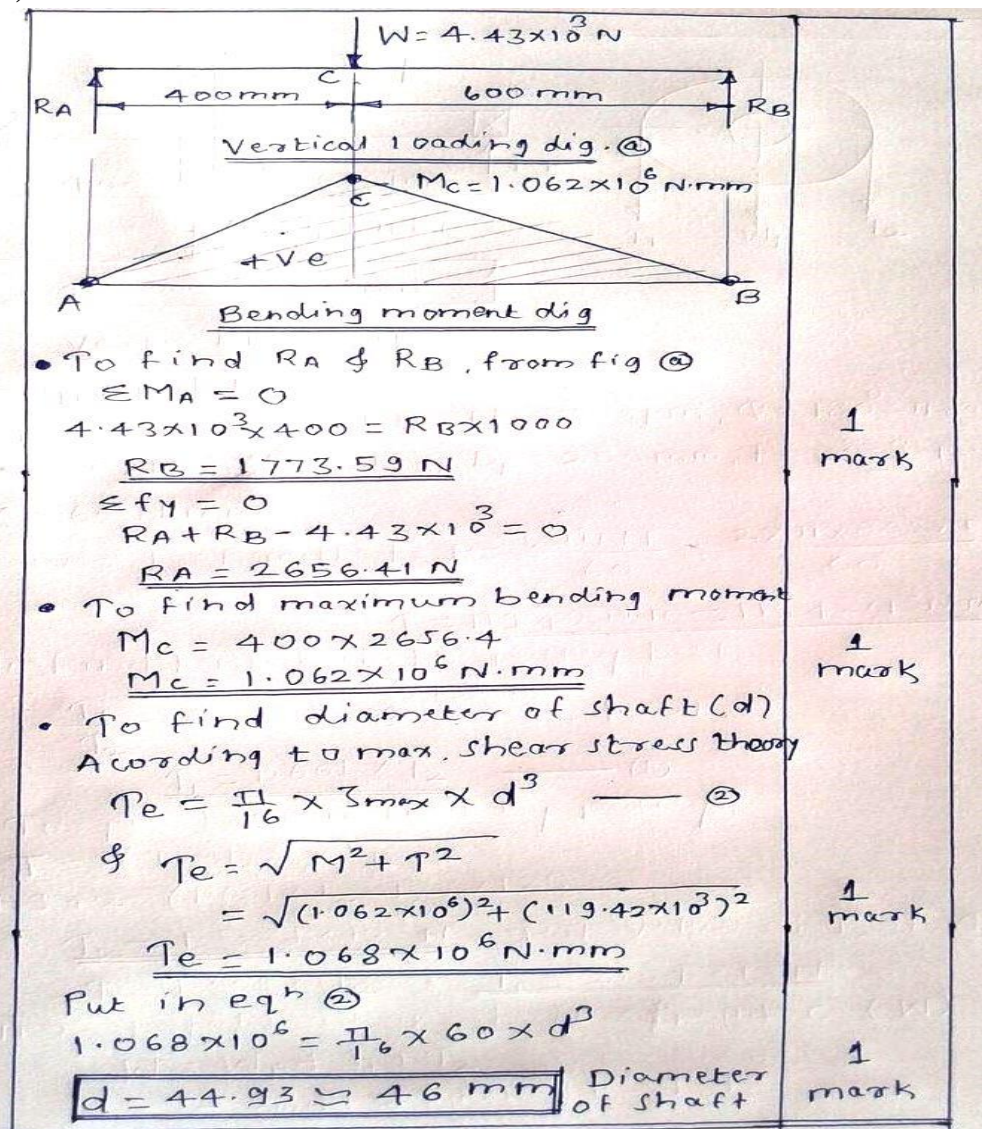 W = 4.43×10³ N
C
RA
400mm
600 mm
RB
Vertical loading dig. ⓐ
Mc = 1.062×10⁶ N.mm
C
+ve
A
B
Bending moment dig
• To find RA & RB, from fig ⓐ
ΣMA = 0
4.43×10³×400 = RB×1000
RB = 1773.59 N
1 mark
Σfy = 0
RA + RB - 4.43×10³ = 0
RA = 2656.41 N
• To find maximum bending moment
Mc = 400×2656.4
Mc = 1.062×10⁶ N.mm
1 mark
• To find diameter of shaft (d)
Acording to max. shear stress theory
Te = π/16 × ʒmax × d³ — ②
& Te = √M²+T²
= √(1.062×10⁶)²+(119.42×10³)²
1 mark
Te = 1.068×10⁶ N.mm
Put in eqⁿ ②
1.068×10⁶ = π/16 × 60 × d³
d = 44.93 ≃ 46 mm Diameter of shaft
1 mark